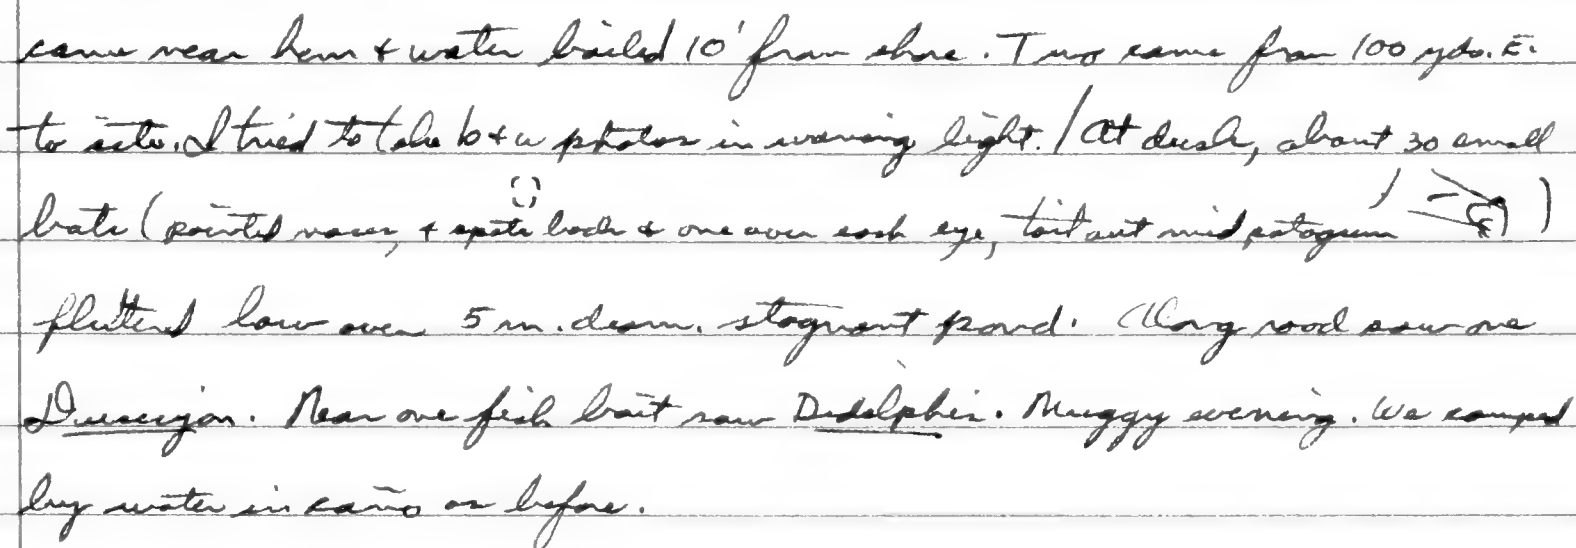 came near him & water boiled 10' from shore. Two came from 100 yds. E.
to site. I tried to take b & w photos in waning light. / At dusk, about 30 small
bats (pointed noses, & spots back & one over each eye, tail out mid patagium )
fluttered low over 5 m. diam. stagnant pond. Along road saw one
Dusicyon. Near one fish bait saw Didelphis. Muggy evening. We camped
by water in caño as before.